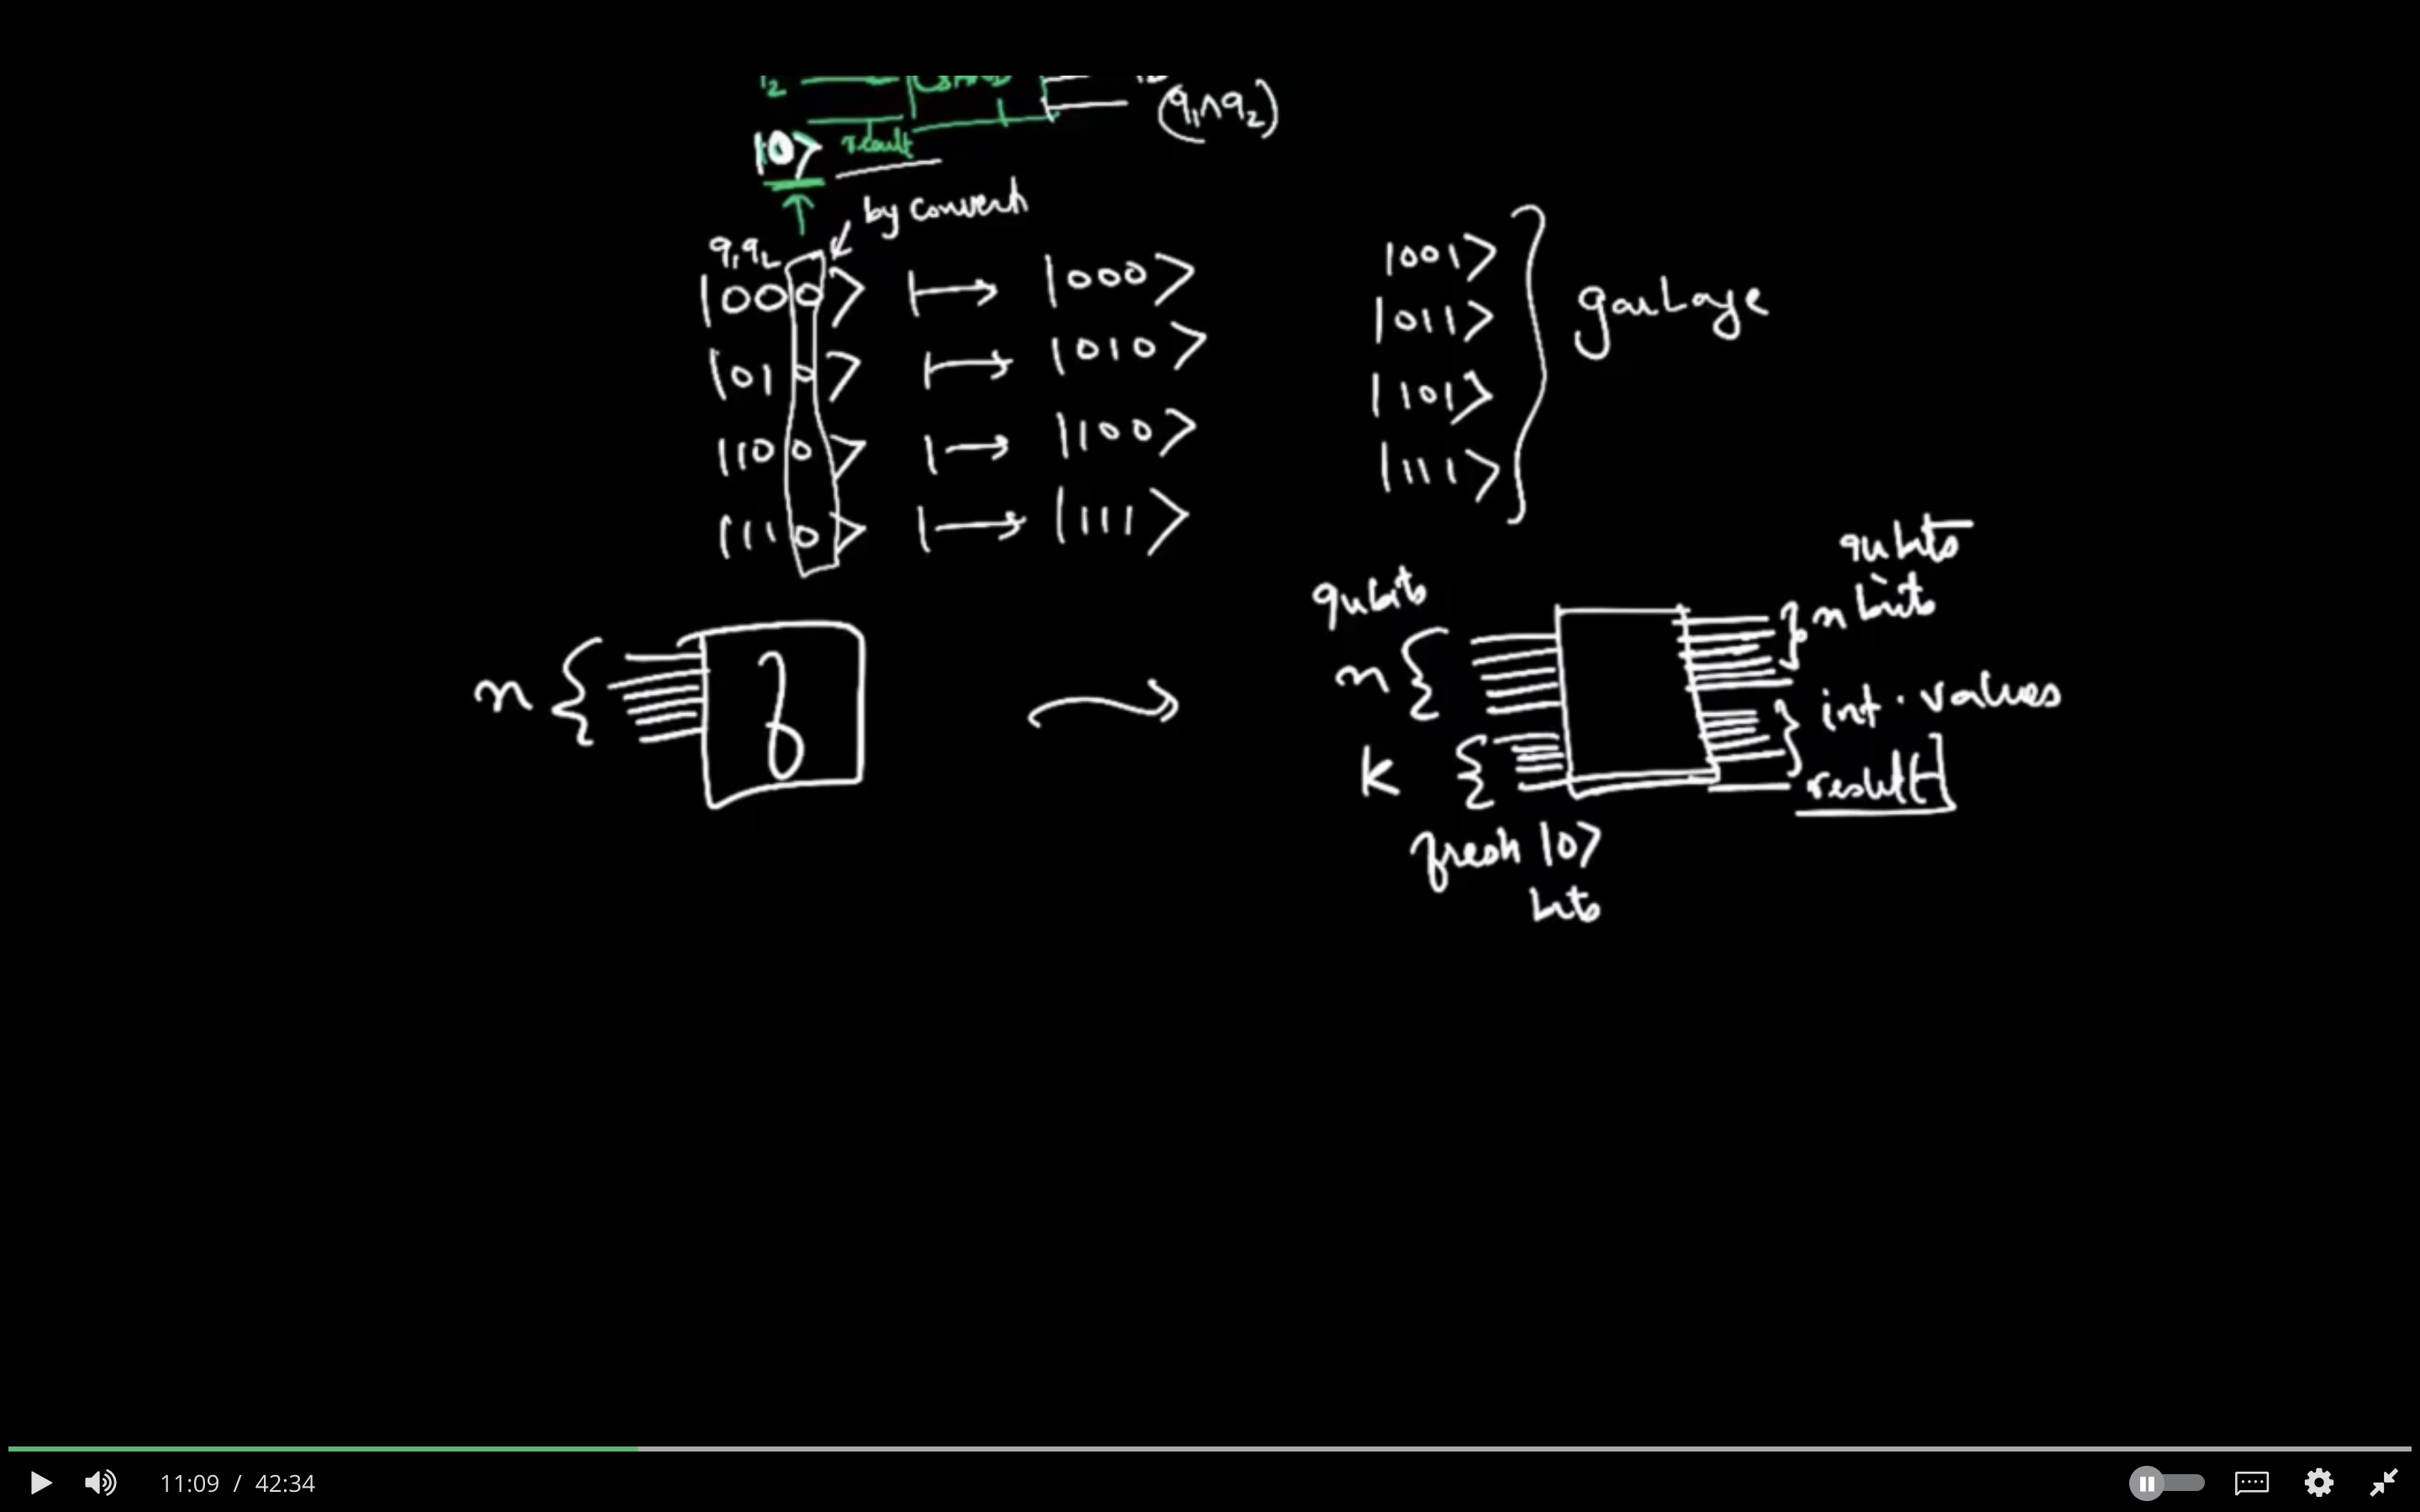 (q₁∧q₂)
|0⟩ result
by convent
q₁q₂
|000⟩ ⟼ |000⟩
|010⟩ ⟼ |010⟩
|100⟩ ⟼ |100⟩
|110⟩ ⟼ |111⟩
|001⟩
|011⟩
|101⟩
|111⟩
garbage
n {
f
qubits
n {
k {
fresh |0⟩
bits
qubits
} n bits
} int. values
result]
11:09 / 42:34